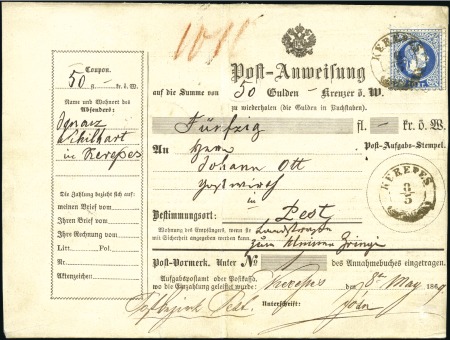 Coupon.
50 g — kr. ö. W.
Name und Wohnort des
Absenders:
Ignacz
Schilhart
in Kerepes
Die Zahlung bezieht sich auf:
meinen Brief vom
Ihren Brief vom
Ihre Rechnung vom
Litt. Pol.
Aktenzeichen
Post-Anweisung
auf die Summe von 50 Gulden — Kreuzer ö. W.
zu wiederholen (die Gulden in Buchstaben)
Fünfzig fl. — kr. ö. W.
An Herrn
Johann Ott
Postwirth
in
Bestimmungsort: Pest
Wohnung des Empfängers, wenn sie
mit Sicherheit angegeben werden kann
Landstrasse
zum kleinen Zrinyi
Post-Aufgabs-Stempel.
KEREPES
8/5
KEREPES
Post-Vormerk. Unter No des Annahmebuches eingetragen.
Aufgabspostamt oder Postkasse,
wo die Einzahlung geleistet wurde:
Kerepes den 8t May 186
Unterschrift: